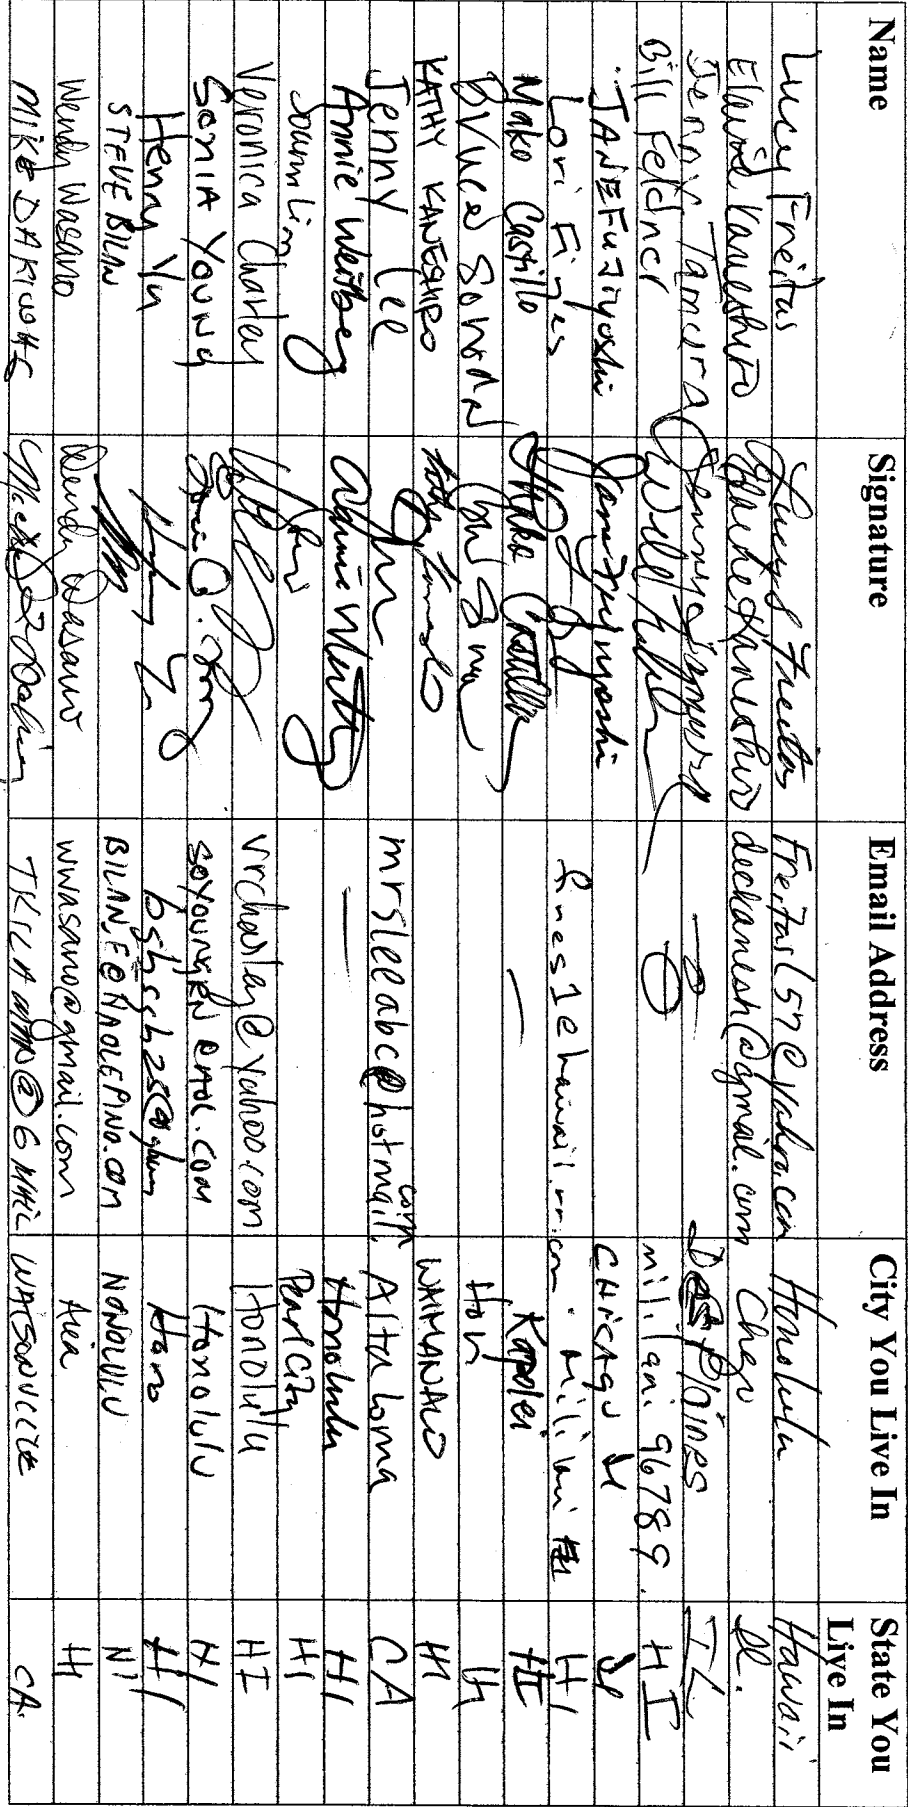 Name Signature Email Address City You Live In State You Live In
Lucy Freitas Lucy Freitas Freitasl57@yahoo.com Honolulu Hawaii
Elaine Kaneshiro Elaine Kaneshiro deckanesh@gmail.com Chgo Il.
Jenny Tamura Jenny Tamura Des Plaines IL
Bill Feldner mililani 96789. HI
JANE FUJIYOSHI Jane Fujiyoshi CHICAGO Il
Lori Fines fines1@hawaii.rr.com Mililani HI
Mako Castillo Mako Castillo — Kapolei HI
Bruce SONODA Hon HI
KATHY KANESHIRO WAIMANALO HI
Jenny Lee mrsleeabc@hotmail.com Alta Loma CA
Annie — Honolulu HI
Soum Lim Pearl City HI
Veronica Charley vrcharley@yahoo.com Honolulu HI
SONIA YOUNG SOYOUNGRN@AOL.COM Honolulu HI
Henry Yu Hono HI
STEVE BILAN HONOLULU HI
Wendy Wasano Wendy Wasano wwasano@gmail.com Aiea HI
MIKE WATSONVILLE CA.